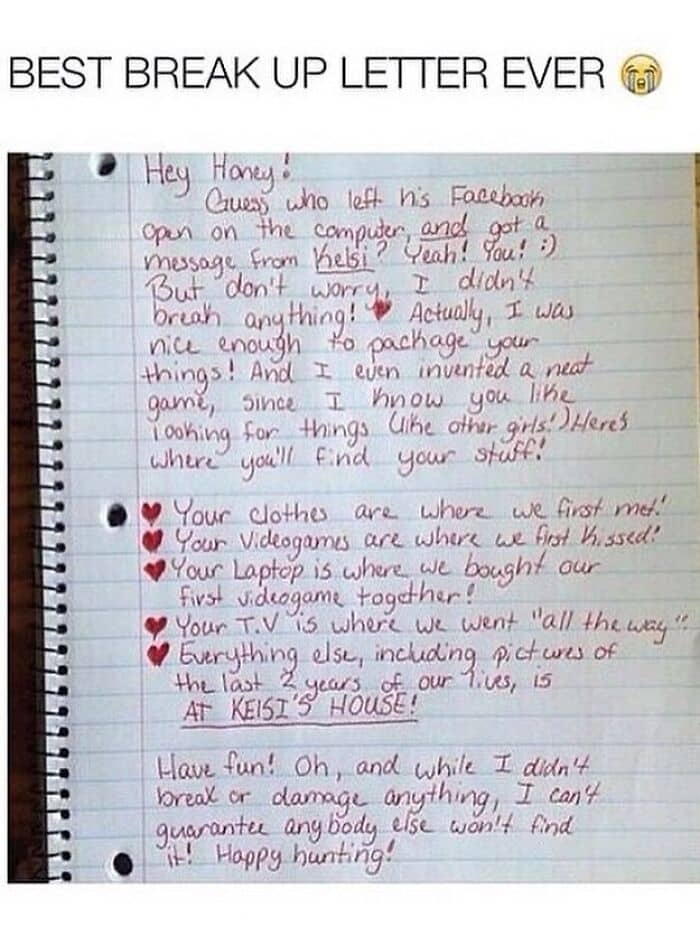 BEST BREAK UP LETTER EVER 😭
Hey Honey!
Guess who left his Facebook
open on the computer, and got a
message from Kelsi? Yeah! You! :)
But don't worry, I didn't
break anything! ♥ Actually, I was
nice enough to package your
things! And I even invented a neat
game, since I know you like
looking for things (like other girls!) Here's
where you'll find your stuff!
♥ Your clothes are where we first met!
♥ Your Videogames are where we first kissed!
♥ Your Laptop is where we bought our
first videogame together!
♥ Your T.V is where we went "all the way"!
♥ Everything else, including pictures of
the last 2 years of our lives, is
AT KElSI'S HOUSE!
Have fun! Oh, and while I didn't
break or damage anything, I can't
guarantee anybody else won't find
it! Happy hunting!